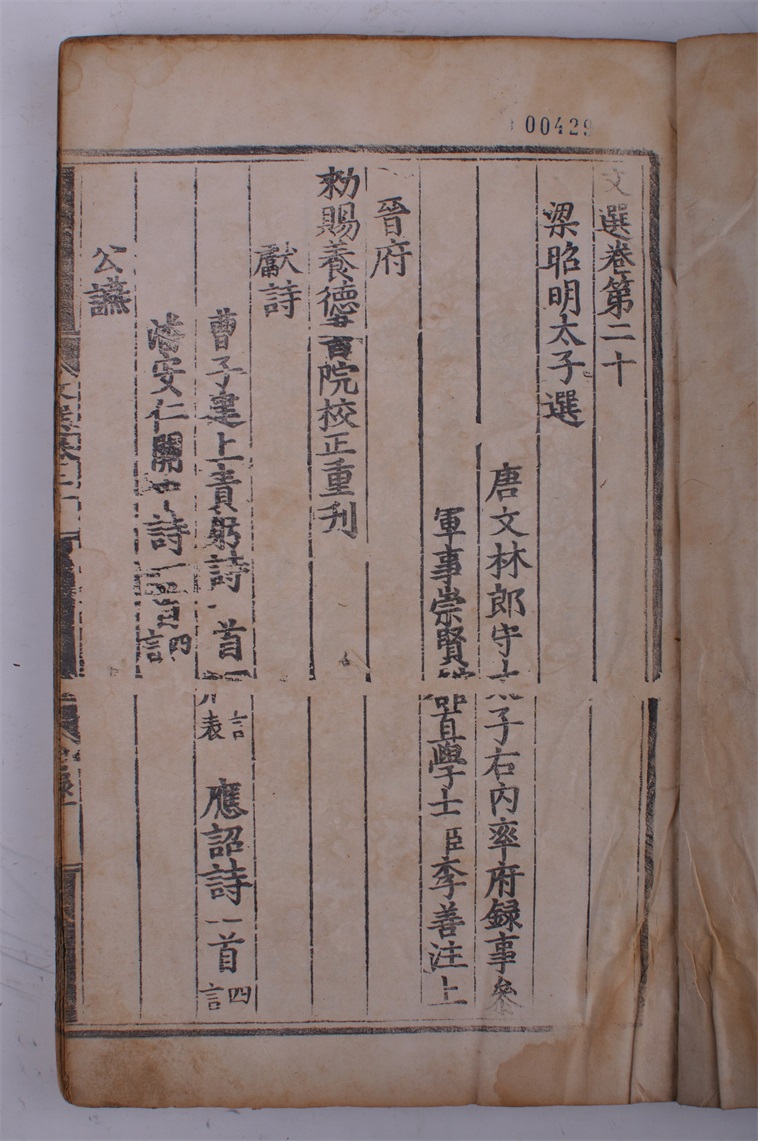 00429
文選卷第二十
梁昭明太子選
唐文林郎守太子右內率府録事參
軍事崇賢館直學士臣李善注上
晉府
勑賜養德書院校正重刋
獻詩
曹子建上責躬詩一首 言 表 應詔詩一首 四言
潘安仁關中詩一首 四言
公讌